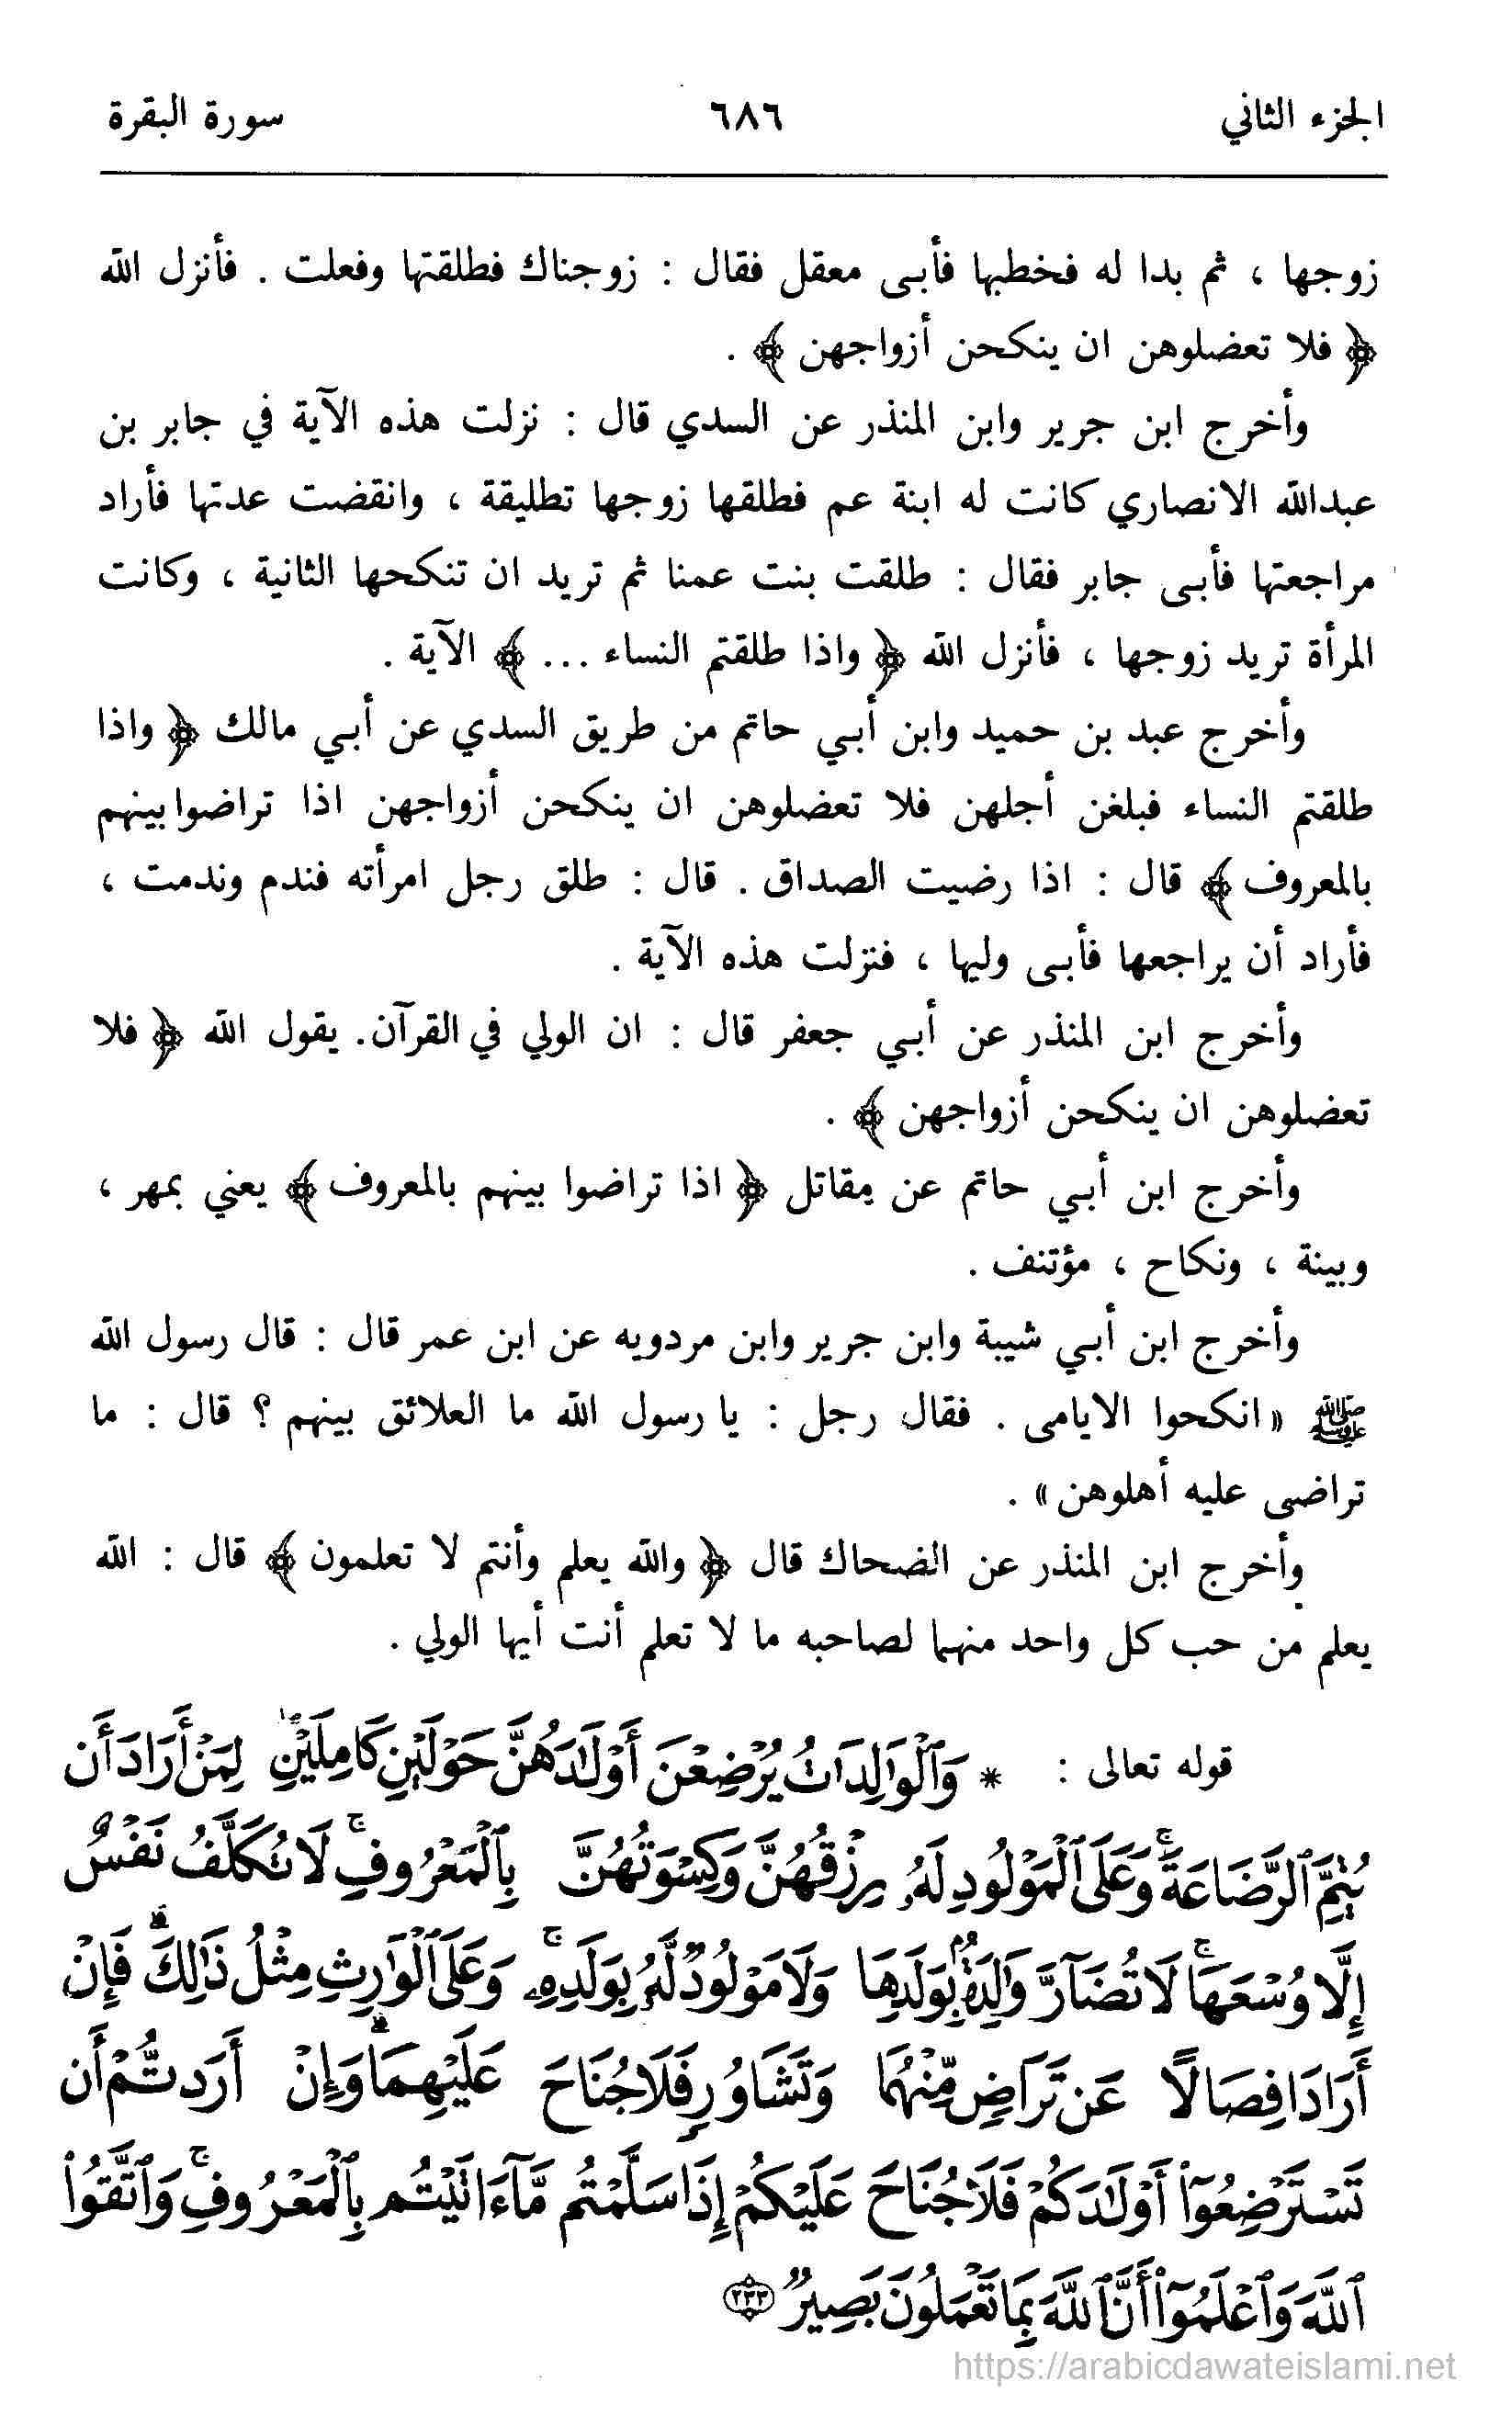 الجزء الثاني ٦٨٦ سورة البقرة
زوجها ، ثم بدا له فخطبها فأبى معقل فقال : زوجناك فطلقتها وفعلت . فأنزل الله
﴿ فلا تعضلوهن ان ينكحن أزواجهن ﴾ .
وأخرج ابن جرير وابن المنذر عن السدي قال : نزلت هذه الآية في جابر بن
عبدالله الانصاري كانت له ابنة عم فطلقها زوجها تطليقة ، وانقضت عدتها فأراد
مراجعتها فأبى جابر فقال : طلقت بنت عمنا ثم تريد ان تنكحها الثانية ، وكانت
المرأة تريد زوجها ، فأنزل الله ﴿ واذا طلقتم النساء ... ﴾ الآية .
وأخرج عبد بن حميد وابن أبي حاتم من طريق السدي عن أبي مالك ﴿ واذا
طلقتم النساء فبلغن أجلهن فلا تعضلوهن ان ينكحن أزواجهن اذا تراضوا بينهم
بالمعروف ﴾ قال : اذا رضيت الصداق . قال : طلق رجل امرأته فندم وندمت ،
فأراد أن يراجعها فأبى وليها ، فنزلت هذه الآية .
وأخرج ابن المنذر عن أبي جعفر قال : ان الولي في القرآن. يقول الله ﴿ فلا
تعضلوهن ان ينكحن أزواجهن ﴾ .
وأخرج ابن أبي حاتم عن مقاتل ﴿ اذا تراضوا بينهم بالمعروف ﴾ يعني بمهر ،
وبينة ، ونكاح ، مؤتنف .
وأخرج ابن أبي شيبة وابن جرير وابن مردويه عن ابن عمر قال : قال رسول الله
ﷺ « انكحوا الايامى . فقال رجل : يا رسول الله ما العلائق بينهم ؟ قال : ما
تراضى عليه أهلوهن » .
وأخرج ابن المنذر عن الضحاك قال ﴿ والله يعلم وأنتم لا تعلمون ﴾ قال : الله
يعلم من حب كل واحد منهما لصاحبه ما لا تعلم أنت أيها الولي .
قوله تعالى : * وَٱلْوَٰلِدَاتُ يُرْضِعْنَ أَوْلَٰدَهُنَّ حَوْلَيْنِ كَامِلَيْنِ ۖ لِمَنْ أَرَادَ أَن
يُتِمَّ ٱلرَّضَاعَةَ ۚ وَعَلَى ٱلْمَوْلُودِ لَهُۥ رِزْقُهُنَّ وَكِسْوَتُهُنَّ بِٱلْمَعْرُوفِ ۚ لَا تُكَلَّفُ نَفْسٌ
إِلَّا وُسْعَهَا ۚ لَا تُضَآرَّ وَٰلِدَةٌۢ بِوَلَدِهَا وَلَا مَوْلُودٌ لَّهُۥ بِوَلَدِهِۦ ۚ وَعَلَى ٱلْوَارِثِ مِثْلُ ذَٰلِكَ ۗ فَإِنْ
أَرَادَا فِصَالًا عَن تَرَاضٍ مِّنْهُمَا وَتَشَاوُرٍ فَلَا جُنَاحَ عَلَيْهِمَا ۗ وَإِنْ أَرَدتُّمْ أَن
تَسْتَرْضِعُوٓا۟ أَوْلَٰدَكُمْ فَلَا جُنَاحَ عَلَيْكُمْ إِذَا سَلَّمْتُم مَّآ ءَاتَيْتُم بِٱلْمَعْرُوفِ ۚ وَٱتَّقُوا۟
ٱللَّهَ وَٱعْلَمُوٓا۟ أَنَّ ٱللَّهَ بِمَا تَعْمَلُونَ بَصِيرٌ ٢٣٣
https://arabicdawateislami.net